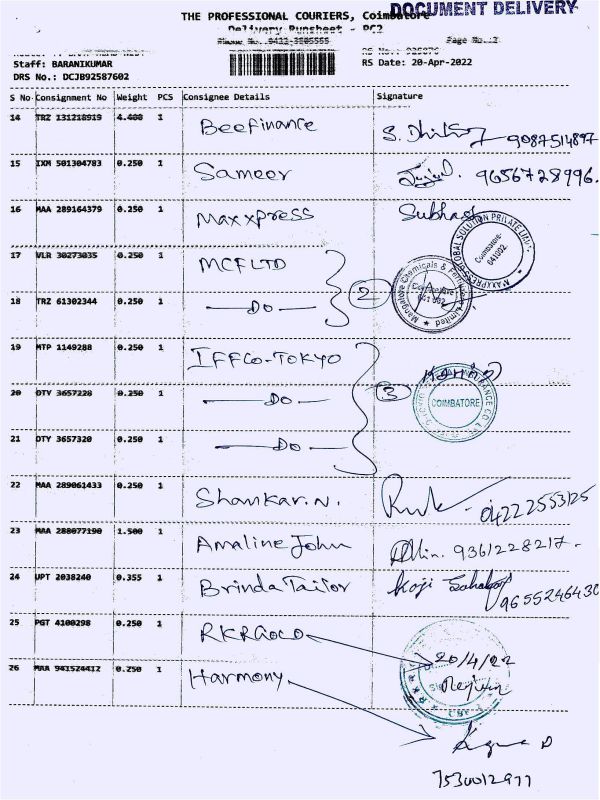 DOCUMENT DELIVERY
THE PROFESSIONAL COURIERS, Coimbatore
Delivery Runsheet - PC2
Page No.:2
Staff: BARANIKUMAR
RS Date: 20-Apr-2022
DRS No.: DCJB92587602
S No Consignment No Weight PCS Consignee Details Signature
14 TRZ 131218919 4.400 1 Beefinance 9087514897
15 IXM 501304783 0.250 1 Sameer 9656728996.
16 MAA 289164379 0.250 1 Maxxpress Subhash
17 VLR 30273035 0.250 1 MCFLTD
18 TRZ 61302344 0.250 1 — Do — 2
19 MTP 1149288 0.250 1 IFFCO-TOKYO
20 OTY 3657228 0.250 1 — Do — 3
COIMBATORE
21 OTY 3657320 0.250 1 — Do —
22 MAA 289061433 0.250 1 Shankar.N. 04222553125
23 MAA 288077190 1.500 1 Amaline John 9361228217.
24 UPT 2038240 0.355 1 Brinda Tailor 9655246430
25 PGT 4100298 0.250 1 RKRGOLD 20/4/22
26 MAA 941524412 0.250 1 Harmony
7530012977